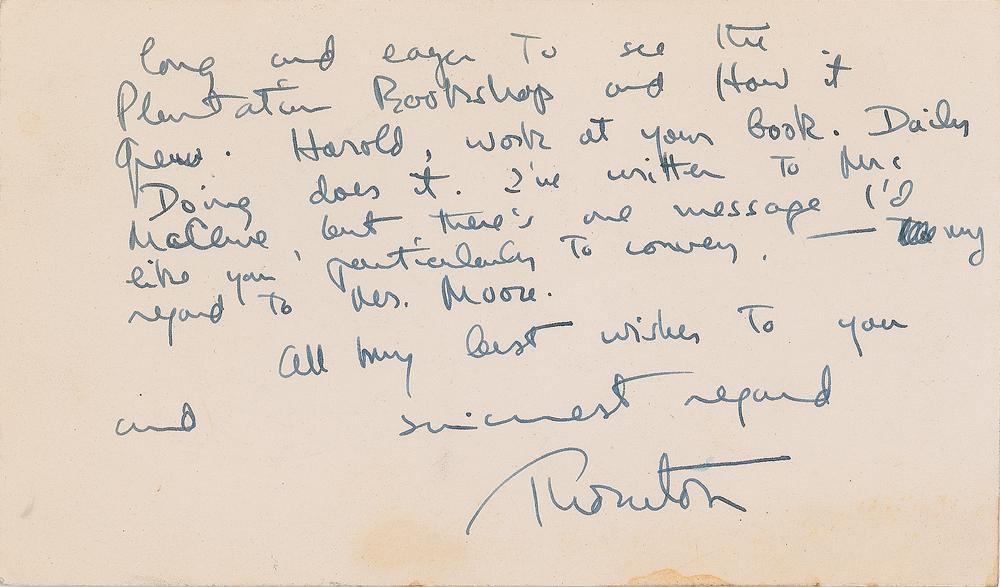 long and eager to see the
Plantation Bookshop and How it
grew. Harold, work at your book. Daily
Doing does it. I've written to Mrs
but there's one message I'd
like you, particularly to convey, — my
regard to Mrs. Moore.
All my best wishes to you
and sincerest regard
Thornton